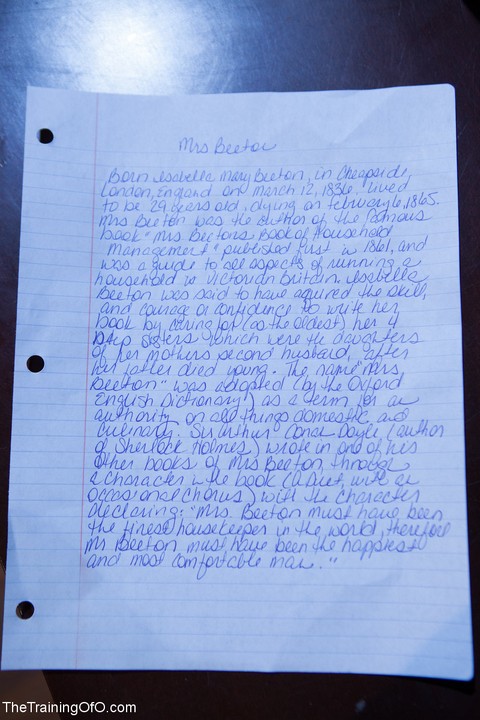 Mrs Beeton
Born Isabella Mary Beeton, in Cheapside,
London, England on March 12, 1836. lived
to be 29 years old. dying on february 6, 1865.
Mrs Beeton was the author of the famous
book "Mrs Beetons Book of Household
Management" published first in 1861, and
was a guide to all aspects of running a
household in Victorian Britain. Isabella
Beeton was said to have aquired the skill,
and courage or confidence to write her
book by caring for (as the oldest) her 4
step sisters which were the daughters
of her mothers second husband, after
her father died young. The same "Mrs
Beeton" was adopted (by the Oxford
English Dictionary) as a term for an
authority on all things domestic and
culinary. Sir Arthur Conan Doyle (author
of Sherlock Holmes) wrote in one of his
other books of Mrs Beeton, through
a character in the book (a Duet, with an
occasional chorus) with the character
declaring: "Mrs. Beeton must have been
the finest housekeeper in the world, therefore
Mr Beeton must have been the happiest
and most comfortable man."
TheTrainingOfO.com